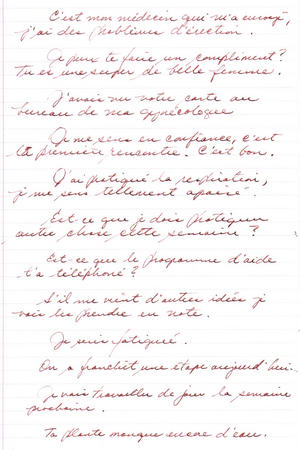 C'est mon médecin qui m'a envoyé,
j'ai des problèmes d'érection.
Je peux te faire un compliment?
Tu es une super de belle femme.
J'avais vu votre carte au
bureau de ma gynécologue
Je me sens en confiance, c'est
la première rencontre. C'est bon.
J'ai pratiqué la respiration,
je me sens tellement apaisé.
Est-ce que je dois pratiquer
autre chose cette semaine?
Est-ce que le programme d'aide
t'a téléphoné?
S'il me vient d'autres idées j
vais les prendre en note.
Je suis fatigué.
On a franchit une étape aujourd'hui.
Je vais travailler de jour la semaine
prochaine.
Ta plante manque encore d'eau.